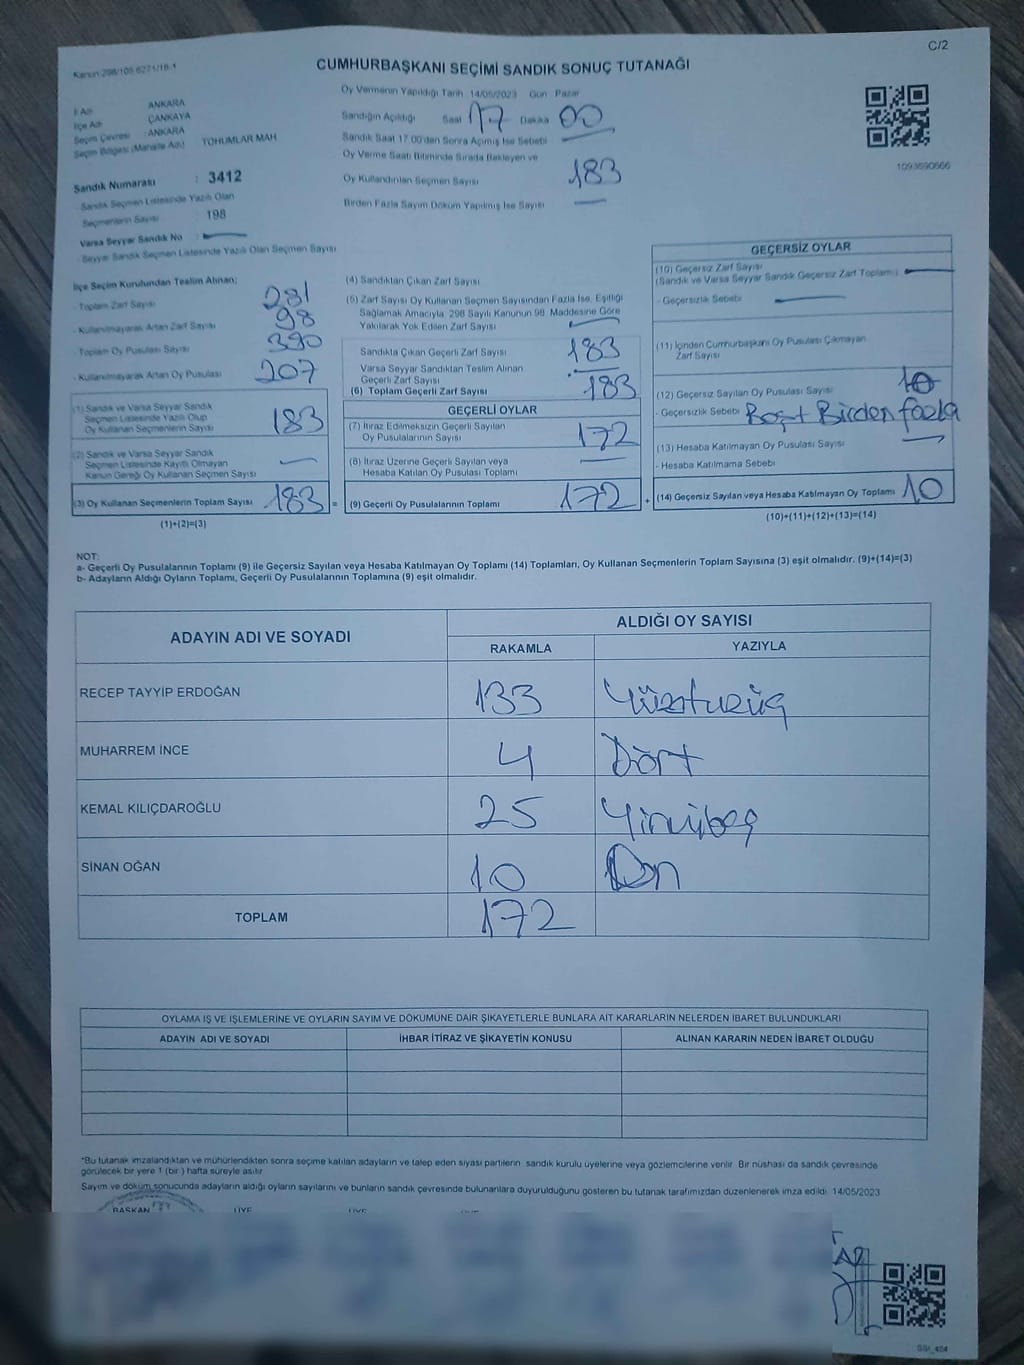 C/2
Kanun:298/105 6271/16-1
CUMHURBAŞKANI SEÇİMİ SANDIK SONUÇ TUTANAĞI
İl Adı ANKARA
İlçe Adı ÇANKAYA
Seçim Çevresi : ANKARA
Seçim Bölgesi (Mahalle Adı) TOHUMLAR MAH
Sandık Numarası : 3412
- Sandık Seçmen Listesinde Yazılı Olan
Seçmenlerin Sayısı 198
Varsa Seyyar Sandık No :
- Seyyar Sandık Seçmen Listesinde Yazılı Olan Seçmen Sayısı
Oy Vermenin Yapıldığı Tarih 14/05/2023 Gün Pazar
Sandığın Açıldığı Saat 17 Dakika 00
Sandık Saat 17 00'den Sonra Açmış İse Sebebi
Oy Verme Saati Bitiminde Sırada Bekleyen ve
Oy Kullandırılan Seçmen Sayısı 183
Birden Fazla Sayım Döküm Yapılmış İse Sayısı
1093690666
İlçe Seçim Kurulundan Teslim Alınan;
- Toplam Zarf Sayısı 281
- Kullanılmayarak Artan Zarf Sayısı 98
- Toplam Oy Pusulası Sayısı 390
- Kullanılmayarak Artan Oy Pusulası 207
(1) Sandık ve Varsa Seyyar Sandık
Seçmen Listesinde Yazılı Olup
Oy Kullanan Seçmenlerin Sayısı 183
(2) Sandık ve Varsa Seyyar Sandık
Seçmen Listesinde Kayıtlı Olmayan
Kanun Gereği Oy Kullanan Seçmen Sayısı
(3) Oy Kullanan Seçmenlerin Toplam Sayısı 183 =
(1)+(2)=(3)
(4) Sandıktan Çıkan Zarf Sayısı
(5) Zarf Sayısı Oy Kullanan Seçmen Sayısından Fazla İse, Eşitliği
Sağlamak Amacıyla 298 Sayılı Kanunun 98. Maddesine Göre
Yakılarak Yok Edilen Zarf Sayısı
Sandıkta Çıkan Geçerli Zarf Sayısı 183
Varsa Seyyar Sandıktan Teslim Alınan
Geçerli Zarf Sayısı
(6) Toplam Geçerli Zarf Sayısı 183
GEÇERLİ OYLAR
(7) İtiraz Edilmeksizin Geçerli Sayılan
Oy Pusulalarının Sayısı 172
(8) İtiraz Üzerine Geçerli Sayılan veya
Hesaba Katılan Oy Pusulası Toplamı
(9) Geçerli Oy Pusulalarının Toplamı 172 +
GEÇERSİZ OYLAR
(10) Geçersiz Zarf Sayısı
(Sandık ve Varsa Seyyar Sandık Geçersiz Zarf Toplamı)
- Geçersizlik Sebebi
(11) İçinden Cumhurbaşkanı Oy Pusulası Çıkmayan
Zarf Sayısı
(12) Geçersiz Sayılan Oy Pusulası Sayısı 10
- Geçersizlik Sebebi Boş+Birden fazla
(13) Hesaba Katılmayan Oy Pusulası Sayısı
- Hesaba Katılmama Sebebi
(14) Geçersiz Sayılan veya Hesaba Katılmayan Oy Toplamı 10
(10)+(11)+(12)+(13)=(14)
NOT:
a- Geçerli Oy Pusulalarının Toplamı (9) ile Geçersiz Sayılan veya Hesaba Katılmayan Oy Toplamı (14) Toplamları, Oy Kullanan Seçmenlerin Toplam Sayısına (3) eşit olmalıdır. (9)+(14)=(3)
b- Adayların Aldığı Oyların Toplamı, Geçerli Oy Pusulalarının Toplamına (9) eşit olmalıdır.
ADAYIN ADI VE SOYADI ALDIĞI OY SAYISI
RAKAMLA YAZIYLA
RECEP TAYYİP ERDOĞAN 133
MUHARREM İNCE 4 Dört
KEMAL KILIÇDAROĞLU 25
SİNAN OĞAN 10 On
TOPLAM 172
OYLAMA İŞ VE İŞLEMLERİNE VE OYLARIN SAYIM VE DÖKÜMÜNE DAİR ŞİKAYETLERLE BUNLARA AİT KARARLARIN NELERDEN İBARET BULUNDUKLARI
ADAYIN ADI VE SOYADI İHBAR İTİRAZ VE ŞİKAYETİN KONUSU ALINAN KARARIN NEDEN İBARET OLDUĞU
*Bu tutanak imzalandıktan ve mühürlendikten sonra seçime katılan adayların ve talep eden siyasi partilerin sandık kurulu üyelerine veya gözlemcilerine verilir. Bir nüshası da sandık çevresinde
görülecek bir yere 1 (bir ) hafta süreyle asılır
Sayım ve döküm sonucunda adayların aldığı oyların sayılarını ve bunların sandık çevresinde bulunanlara duyurulduğunu gösteren bu tutanak tarafımızdan düzenlenerek imza edildi. 14/05/2023
BAŞKAN ÜYE ÜYE ÜYE